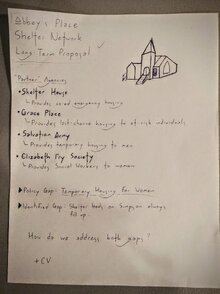 Abbey's Place
Shelter Network
Long Term Proposal
"Partner" Agencies
• Shelter House
↳ Provides co-ed emergency housing
• Grace Place
↳ Provides last-chance housing to at-risk individuals
• Salvation Army
↳ Provides temporary housing to men
• Elizabeth Fry Society
↳ Provides Social Workers to women
▶ Policy Gap: Temporary Housing For Women
▶ Identified Gap: Shelter beds on Simpson always
fill up.
How do we address both gaps?
+CV